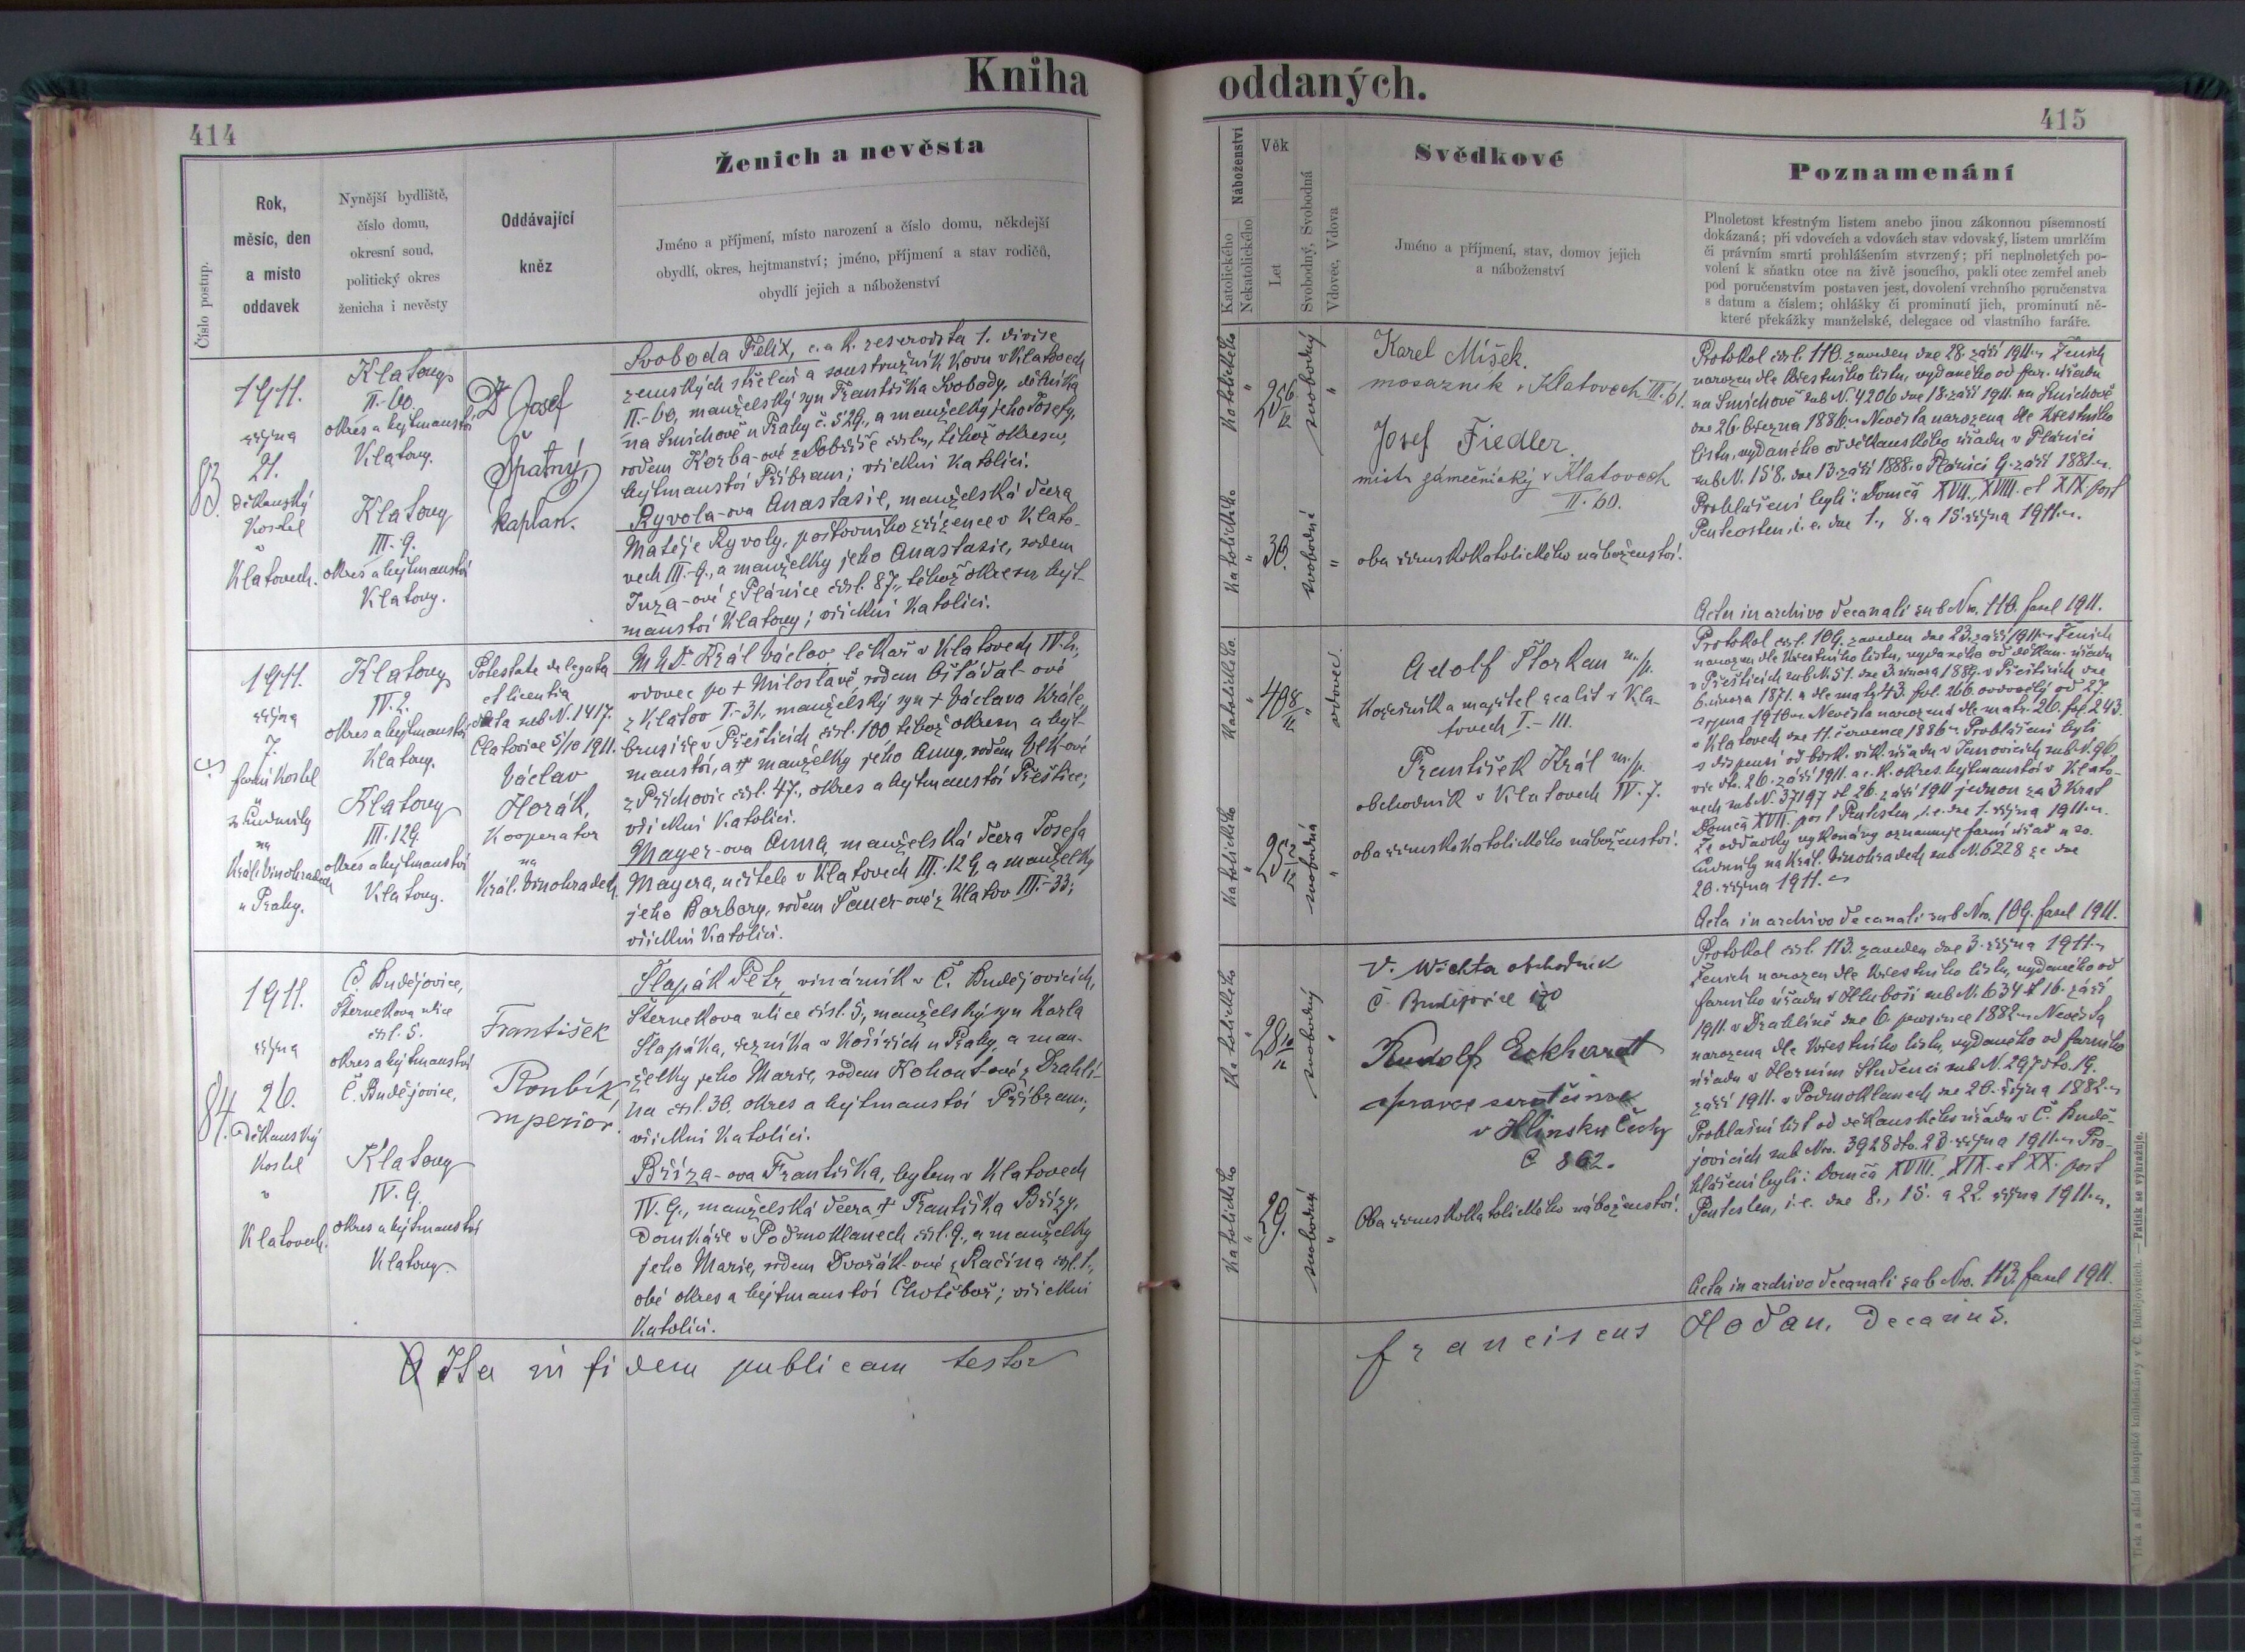 Kniha oddaných.
414
415
Číslo postup.
Rok,
měsíc, den
a místo
oddavek
Nynější bydliště,
číslo domu,
okresní soud,
politický okres
ženicha i nevěsty
Oddávající
kněz
Ženich a nevěsta
Jméno a příjmení, místo narození a číslo domu, někdejší
obydlí, okres, hejtmanství; jméno, příjmení a stav rodičů,
obydlí jejich a náboženství
Náboženství
Katolického
Nekatolického
Věk
Let
Svobodný, Svobodná
Vdovec, Vdova
Svědkové
Jméno a příjmení, stav, domov jejich
a náboženství
Poznamenání
Plnoletost křestným listem anebo jinou zákonnou písemností
dokázaná; při vdovcích a vdovách stav vdovský, listem umrlčím
či právním smrti prohlášením stvrzený; při neplnoletých po-
volení k sňatku otce na živě jsoucího, pakli otec zemřel aneb
pod poručenstvím postaven jest, dovolení vrchního poručenstva
s datum a číslem; ohlášky či prominutí jich, prominutí ně-
které překážky manželské, delegace od vlastního faráře.
83.
1911.
října
21.
Děkanský
Kostel
v
Klatovech.
Klatovy
II.-60.
okres a hejtmanství
Klatovy.
Klatovy
III.-9.
okres a hejtmanství
Klatovy.
Dr Josef
Špatný,
kaplan.
Svoboda Felix, c. a k. reservista 1. divise
zemských střelců a soustružník kovu v Klatovech
II.-60, manželský syn Františka Svobody, dělníka
na Smíchově u Prahy č. 529., a manželky jeho Josefy,
rodem Korba-ové z Dobříše čísl., téhož okresu,
hejtmanství Příbram; všickni Katolíci.
Ryvola-ova Anastasie, manželská dcera
Matěje Ryvoly, poštovního zřízence v Klato-
vech III.-9., a manželky jeho Anastasie, rodem
Inza-ové z Plánice čísl. 87., téhož okresu, hejt-
manství Klatovy; všickni Katolíci.
Katolického
"
25 6/12
svobodný
"
Katolického
"
30.
svobodná
"
Karel Míšek.
mosazník v Klatovech III. 61.
Josef Fiedler.
mistr zámečnický v Klatovech
II. 60.
oba římskokatolického náboženství.
Protokol čísl. 110. zaveden dne 28. září 1911. Ženich
narozen dle křestního listu, vydaného od far. úřadu
na Smíchově sub N. 4206 dne 18. září 1911. na Smíchově
dne 26. března 1886. Nevěsta narozena dle Křestního
listu, vydaného od děkanského úřadu v Plánici
sub N. 158. dne 13. září 1888. v Plánici 9. září 1881.
Prohlášeni byli: Domca XVII., XVIII. et XIX. post
Pentecosten, i. e. dne 1., 8. a 15. října 1911.
Acta in archivo decanali sub Nro. 110. fascl 1911.
1911.
října
7.
farní Kostel
sv Ludmily
na
Král. Vinohradech
u Prahy.
Klatovy
IV. 2.
okres a hejtmanství
Klatovy.
Klatovy
III. 129.
okres a hejtmanství
Klatovy.
Potestate delegata
et licentia
data sub N. 1417.
Clatoviae 5/10 1911.
Václav
Horák,
Kooperator
na
Král. Vinohradech.
MUDr. Král Václav lékař v Klatovech IV. 2.,
vdovec po † Miloslavě, rodem Ošťádal-ové
z Klatov I.-31., manželský syn † Václava Krále,
brusiče v Přešticích čísl. 100 téhož okresu a hejt-
manství, a † manželky jeho Anny, rodem Vlk-ové
z Příchovic čísl. 47., okres a hejtmanství Přeštice;
všickni Katolíci.
Mayer-ova Anna, manželská dcera Josefa
Mayera, učitele v Klatovech III. 129, a manželky
jeho Barbory, rodem Sauer-ové z Klatov III.-33;
všickni Katolíci.
Katolického.
"
40 8/12
"
vdovec.
Katolického
"
25 2/12
svobodná
"
Adolf Florkan m./p.
Kožešník a majitel realit v Kla-
tovech I.-111.
František Král m./p.
obchodník v Klatovech IV. 7.
oba římskokatolického náboženství.
Protokol čísl. 109. zaveden dne 23. září 1911. Ženich
narozen dle křestního listu, vydaného od děkan. úřadu
v Přešticích sub N. 51. dne 3. února 1889. v Přešticích dne
6. února 1871. a dle matr. 43. fol. 266. ovdovělý od 27.
srpna 1910. Nevěsta narozená dle matr. 26. fol. 243.
v Klatovech dne 11. července 1886. Prohlášeni byli
s dispensí od bisk. vik. úřadu v Janovicích sub N. 96
vic dto. 26. září 1911. a c. k. okres. hejtmanství v Klato-
vech sub N. 37197 dt 26. září 1911 jednou za 3 krát
Domca XVII. post Pentcsten, i. e. dne 1. října 1911.
Že oddavky vykonány oznamuje farní úřad u sv.
Ludmily na Král. Vinohradech sub N. 6228 ze dne
20. října 1911.
Acta in archivo decanali sub Nro. 109. fascl 1911.
84.
1911.
října
26.
Děkanský
Kostel
v
Klatovech.
Č. Budějovice,
Šternekova ulice
čísl. 5.
okres a hejtmanství
Č. Budějovice.
Klatovy
IV. 9.
okres a hejtmanství
Klatovy.
František
superior.
Šlapák Petr, vinárník v Č. Budějovicích,
Šternekova ulice čísl. 5., manželský syn Karla
Šlapáka, řezníka v Košířích u Prahy, a man-
želky jeho Marie, rodem Kohout-ové z Drahlí-
na čísl. 30. okres a hejtmanství Příbram;
všickni Katolíci.
Bříza-ova Františka, bytem v Klatovech
IV. 9., manželská dcera † Františka Břízy,
domkáře v Podmoklanech čísl. 9., a manželky
jeho Marie, rodem Dvořák-ové z Račína čísl. 1.,
obé okres a hejtmanství Chotěboř; všickni
Katolíci.
Katolického
"
28 10/12
svobodný
"
Katolického
"
29.
svobodná
"
V. Wichta obchodník
Č. Budějovice
Rudolf Eckhardt
správce
v Hlinsku Čechy
č 862.
Oba římskokatolického náboženství.
Protokol čísl. 113. zaveden dne 3. října 1911.
Ženich narozen dle křestního listu, vydaného od
farního úřadu v Hluboši sub N. 634 dt 16. září
1911. v Drahlíně dne 6. prosince 1882. Nevěsta
narozena dle křestního listu, vydaného od farního
úřadu v Horním Studenci sub N. 297 dto. 19.
září 1911. v Podmoklanech dne 20. října 1882.
Prohlašní list od děkanského úřadu v Č. Budě-
jovicích sub Nro. 3928 dto. 23. října 1911. Pro-
hlášeni byli: Domca XVIII., XIX. et XX. post
Pentcsten, i. e. dne 8., 15. a 22. října 1911.
Acta in archivo decanali sub Nro. 113. fascl 1911.
Ita in fidem publicam testor
Franciscus Hodan, Decanus.
Tisk a sklad biskupské knihtiskárny v Č. Budějovicích. — Patisk se vyhražuje.